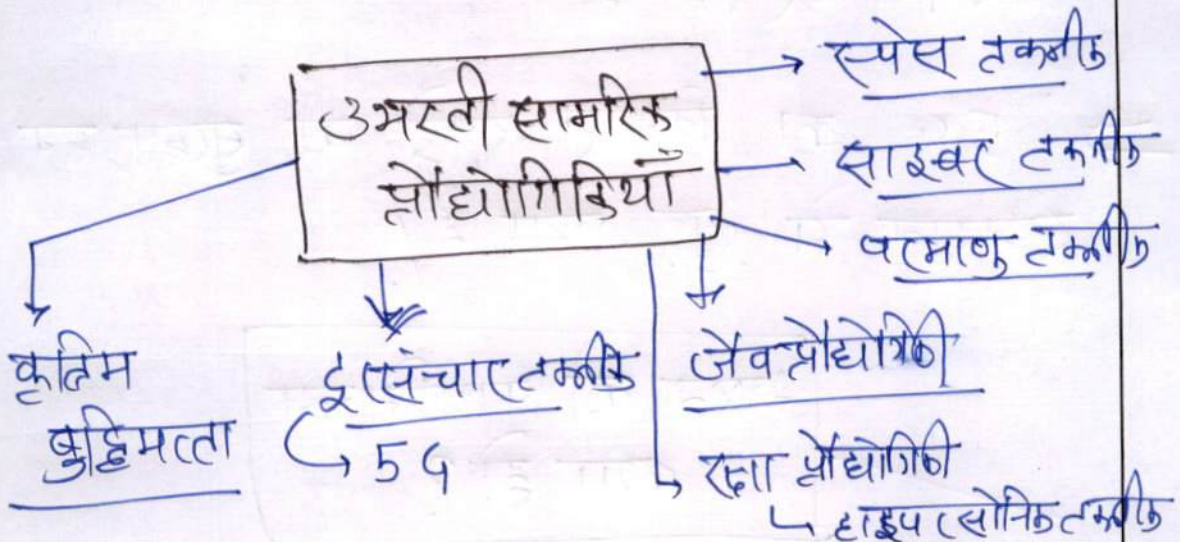 उभरती सामरिक
प्रौद्योगिकियाँ
स्पेस तकनीक
साइबर तकनीक
परमाणु तकनीक
कृत्रिम
बुद्धिमत्ता
दूरसंचार तकनीक
5G
जैवप्रौद्योगिकी
रक्षा प्रौद्योगिकी
हाइपरसोनिक तकनीक